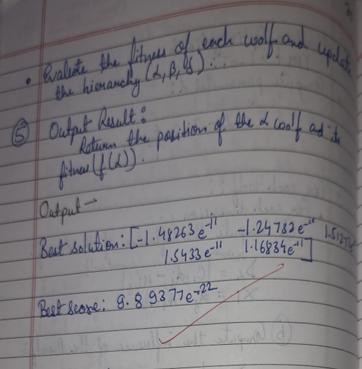 • Evaluate the fitness of each wolf and update
the hierarchy (α, β, δ).
⑤ Output Result:
Return the position of the α wolf and its
fitness (f(α)).
Output →
Best solution: [-1.48263e⁻¹¹ -1.24782e⁻¹¹
1.5433e⁻¹¹ 1.16834e⁻¹¹]
Best score: 9.89377e⁻²²